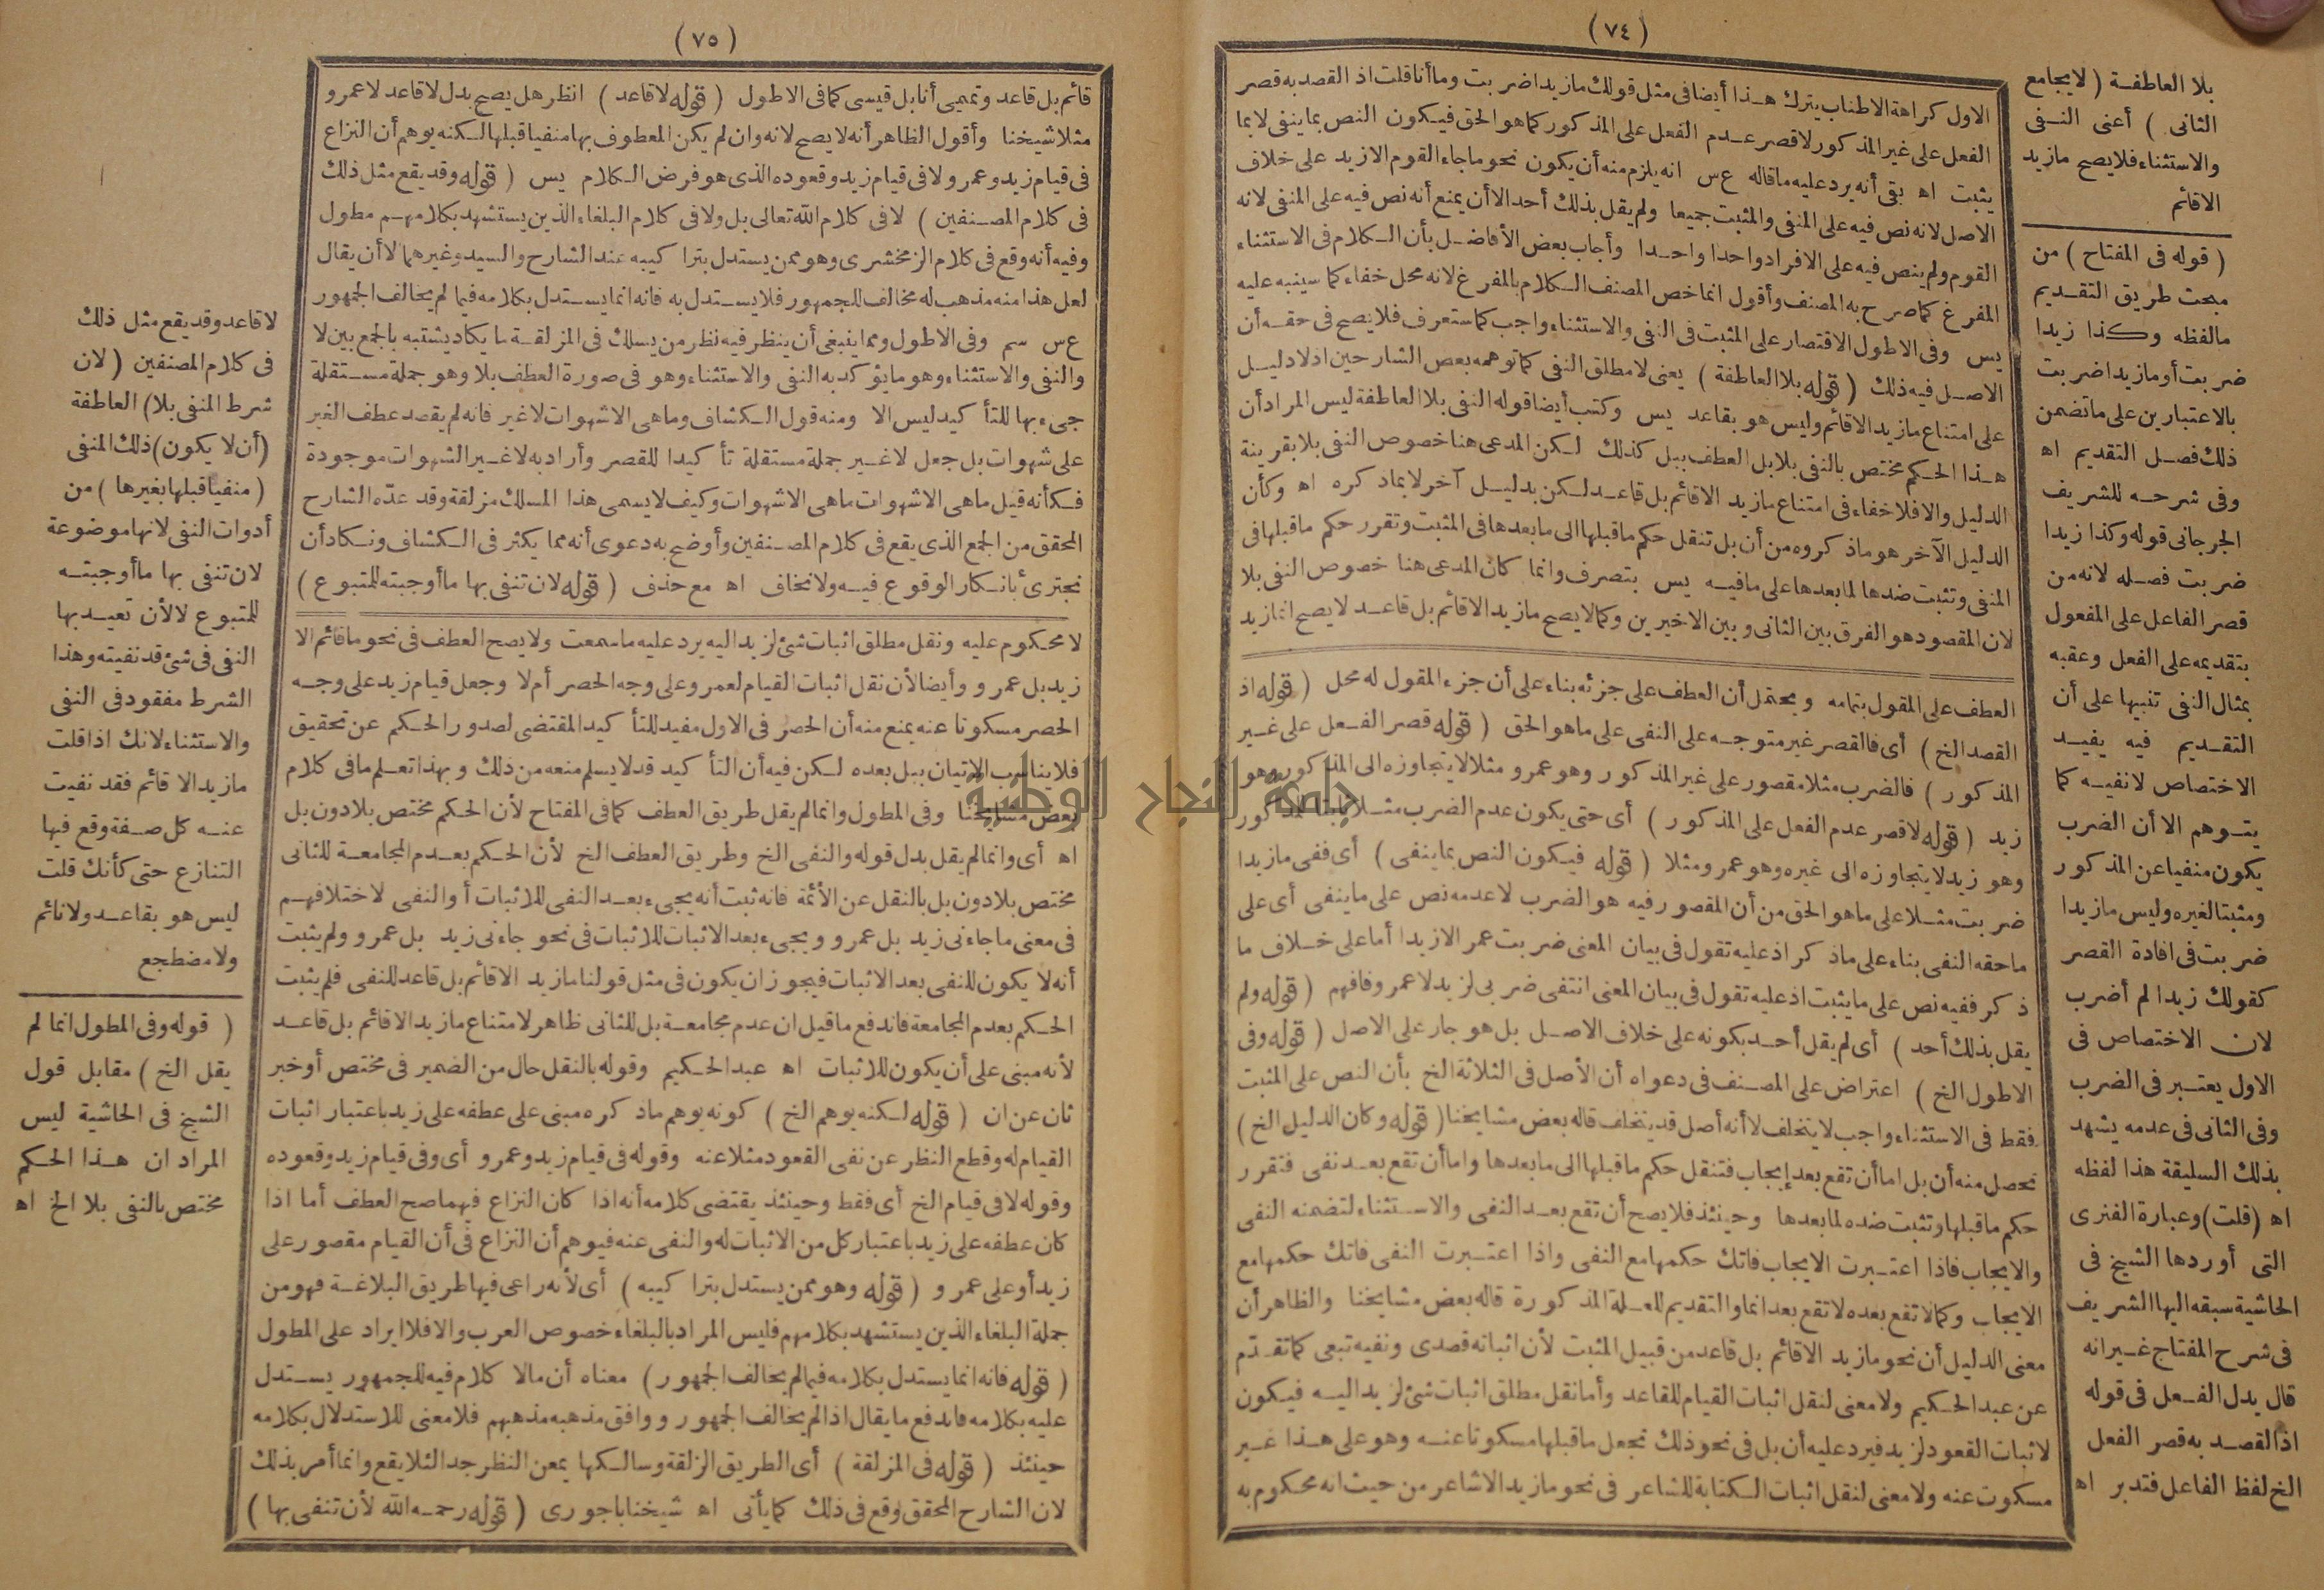 (٧٤)
بلا العاطفة (لا يجامع
الثانى) أعنى النفى
والاستثناء فلا يصح ما زيد
الا قائم
(قوله فى المفتاح) من
مبحث طريق التقديم
مالفظه وكذا زيدا
ضربت أو ما زيدا ضربت
بالاعتبارين على ما تضمن
ذلك فصل التقديم اه
وفى شرحه للشريف
الجرجانى قوله وكذا زيدا
ضربت فصله لانه من
قصر الفاعل على المفعول
بتقديمه على الفعل وعقبه
بمثال النفى تنبيها على أن
التقديم فيه يفيد
الاختصاص لا نفيه كما
يتوهم الا أن الضرب
يكون منفيا عن المذكور
ومثبتا لغيره وليس ما زيدا
ضربت فى افادة القصر
كقولك زيدا لم أضرب
لان الاختصاص فى
الاول يعتبر فى الضرب
وفى الثانى فى عدمه يشهد
بذلك السليقة هذا لفظه
اه (قلت) وعبارة الفنرى
التى أوردها الشيخ فى
الحاشية سبقه اليها الشريف
فى شرح المفتاح غير انه
قال بدل الفعل فى قوله
اذ القصد به قصر الفعل
الخ لفظ الفاعل فتدبر اه
الاول كراهة الاطناب يترك هذا أيضا فى مثل قولك ما زيدا ضربت وما أنا قلت اذ القصد به قصر
الفعل على غير المذكور لا قصر عدم الفعل على المذكور كما هو الحق فيكون النص بما ينفى لا بما
يثبت اه بقى أنه يرد عليه ما قاله ع س انه يلزم منه أن يكون نحو ما جاء القوم الا زيد على خلاف
الاصل لانه نص فيه على المنفى والمثبت جميعا ولم يقل بذلك أحد الا أن يمنع أنه نص فيه على المنفى لانه
القوم ولم ينص فيه على الافراد واحدا واحدا وأجاب بعض الأفاضل بأن الكلام فى الاستثناء
المفرغ كما صرح به المصنف وأقول انما خص المصنف الكلام بالمفرغ لانه محل خفاء كما سينبه عليه
يس وفى الاطول الاقتصار على المثبت فى النفى والاستثناء واجب كما ستعرف فلا يصح فى حقه أن
الاصل فيه ذلك (قوله بلا العاطفة) يعنى لا مطلق النفى كما توهمه بعض الشارحين اذ لا دليل
على امتناع ما زيد الا قائم وليس هو بقاعد يس وكتب أيضا قوله النفى بلا العاطفة ليس المراد أن
هذا الحكم مختص بالنفى بلا بل العطف ببل كذلك لكن المدعى هنا خصوص النفى بلا بقرينة
الدليل والا فلا خفاء فى امتناع ما زيد الا قائم بل قاعد لكن بدليل آخر لا بما ذكره اه وكأن
الدليل الآخر هو ما ذكروه من أن بل تنقل حكم ما قبلها الى ما بعدها فى المثبت وتقرر حكم ما قبلها فى
المنفى وتثبت ضدها لما بعدها على ما فيه يس بتصرف وانما كان المدعى هنا خصوص النفى بلا
لان المقصود هو الفرق بين الثانى وبين الاخيرين وكما لا يصح ما زيد الا قائم بل قاعد لا يصح انما زيد
العطف على المقول بتمامه ويحتمل أن العطف على جزئه بناء على أن جزء المقول له محل (قوله اذ
القصد الخ) أى فالقصر غير متوجه على النفى على ما هو الحق (قوله قصر الفعل على غير
المذكور) فالضرب مثلا مقصور على غير المذكور وهو عمرو مثلا لا يتجاوزه الى المذكور وهو
زيد (قوله لا قصر عدم الفعل على المذكور) أى حتى يكون عدم الضرب مثلا ثابتا للمذكور
وهو زيد لا يتجاوزه الى غيره وهو عمرو مثلا (قوله فيكون النص بما ينفى) أى ففى ما زيدا
ضربت مثلا على ما هو الحق من أن المقصور فيه هو الضرب لا عدمه نص على ما ينفى أى على
ما حقه النفى بناء على ما ذكر اذ عليه تقول فى بيان المعنى ضربت عمر الا زيدا أما على خلاف ما
ذكر ففيه نص على ما يثبت اذ عليه تقول فى بيان المعنى انتفى ضربى لزيد لا عمرو فافهم (قوله ولم
يقل بذلك أحد) أى لم يقل أحد بكونه على خلاف الاصل بل هو جار على الاصل (قوله وفى
الاطول الخ) اعتراض على المصنف فى دعواه أن الأصل فى الثلاثة الخ بأن النص على المثبت
فقط فى الاستثناء واجب لا يتخلف لا أنه أصل قد يتخلف قاله بعض مشايخنا (قوله وكان الدليل الخ)
تحصل منه أن بل اما أن تقع بعد إيجاب فتنقل حكم ما قبلها الى ما بعدها واما أن تقع بعد نفى فتقرر
حكم ما قبلها وتثبت ضده لما بعدها وحينئذ فلا يصح أن تقع بعد النفى والاستثناء لتضمنه النفى
والايجاب فاذا اعتبرت الايجاب فاتك حكمها مع النفى واذا اعتبرت النفى فاتك حكمها مع
الايجاب وكما لا تقع بعده لا تقع بعد انما والتقديم للعلة المذكورة قاله بعض مشايخنا والظاهر أن
معنى الدليل أن نحو ما زيد الا قائم بل قاعد من قبيل المثبت لأن اثباته قصدى ونفيه تبعى كما تقدّم
عن عبد الحكيم ولا معنى لنقل اثبات القيام للقاعد وأما نقل مطلق اثبات شئ لزيد اليه فيكون
لاثبات القعود لزيد فيرد عليه أن بل فى نحو ذلك تجعل ما قبلها مسكوتا عنه وهو على هذا غير
مسكوت عنه ولا معنى لنقل اثبات الكتابة للشاعر فى نحو ما زيد الا شاعر من حيث انه محكوم به
(٧٥)
قائم بل قاعد وتميمى أنا بل قيسى كما فى الاطول (قوله لا قاعد) انظر هل يصح بدل لا قاعد لا عمرو
مثلا شيخنا وأقول الظاهر أنه لا يصح لانه وان لم يكن المعطوف بها منفيا قبلها لكنه يوهم أن النزاع
فى قيام زيد وعمرو لا فى قيام زيد وقعوده الذى هو فرض الكلام يس (قوله وقد يقع مثل ذلك
فى كلام المصنفين) لا فى كلام الله تعالى بل ولا فى كلام البلغاء الذين يستشهد بكلامهم مطول
وفيه أنه وقع فى كلام الزمخشرى وهو ممن يستدل بتراكيبه عند الشارح والسيد وغيرهما لا أن يقال
لعل هذا منه مذهب له مخالف للجمهور فلا يستدل به فانه انما يستدل بكلامه فيما لم يخالف الجمهور
ع س سم وفى الاطول ومما ينبغى أن ينظر فيه نظر من يسلك فى المزلقة ما يكاد يشتبه بالجمع بين لا
والنفى والاستثناء وهو ما يؤكد به النفى والاستثناء وهو فى صورة العطف بلا وهو جملة مستقلة
جىء بها للتأكيد ليس الا ومنه قول الكشاف وما هى الا شهوات لا غير فانه لم يقصد عطف الغير
على شهوات بل جعل لا غير جملة مستقلة تأكيدا للقصر وأراد به لا غير الشهوات موجودة
فكأنه قيل ما هى الا شهوات ما هى الا شهوات وكيف لا يسمى هذا المسلك مزلقة وقد عدّه الشارح
المحقق من الجمع الذى يقع فى كلام المصنفين وأوضح به دعوى أنه مما يكثر فى الكشاف ونكاد أن
نجترئ بانكار الوقوع فيه ولا نخاف اه مع حذف (قوله لان تنفى بها ما أوجبته للمتبوع)
لا محكوم عليه ونقل مطلق اثبات شئ لزيد اليه يرد عليه ما سمعت ولا يصح العطف فى نحو ما قائم الا
زيد بل عمرو وأيضا لأن نقل اثبات القيام لعمرو على وجه الحصر أم لا وجعل قيام زيد على وجه
الحصر مسكوتا عنه يمنع منه أن الحصر فى الاول مفيد للتأكيد المقتضى لصدور الحكم عن تحقيق
فلا يناسب الاتيان ببل بعده لكن فيه أن التأكيد قد لا يسلم منعه من ذلك وبهذا تعلم ما فى كلام
بعض مشايخنا وفى المطول وانما لم يقل طريق العطف كما فى المفتاح لأن الحكم مختص بلا دون بل
اه أى وانما لم يقل بدل قوله والنفى الخ وطريق العطف الخ لأن الحكم بعدم المجامعة للثانى
مختص بلا دون بل بالنقل عن الأئمة فانه ثبت أنه يجىء بعد النفى للاثبات أو النفى لاختلافهم
فى معنى ما جاءنى زيد بل عمرو ويجىء بعد الاثبات للاثبات فى نحو جاءنى زيد بل عمرو ولم يثبت
أنه لا يكون للنفى بعد الاثبات فيجوز ان يكون فى مثل قولنا ما زيد الا قائم بل قاعد للنفى فلم يثبت
الحكم بعدم المجامعة فاندفع ما قيل ان عدم مجامعة بل للثانى ظاهر لامتناع ما زيد الا قائم بل قاعد
لأنه مبنى على أن يكون للاثبات اه عبد الحكيم وقوله بالنقل حال من الضمير فى مختص أو خبر
ثان عن ان (قوله لكنه يوهم الخ) كونه يوهم ما ذكره مبنى على عطفه على زيد باعتبار اثبات
القيام له وقطع النظر عن نفى القعود مثلا عنه وقوله فى قيام زيد وعمرو أى وفى قيام زيد وقعوده
وقوله لا فى قيام الخ أى فقط وحينئذ يقتضى كلامه أنه اذا كان النزاع فيهما صح العطف أما اذا
كان عطفه على زيد باعتبار كل من الاثبات له والنفى عنه فيوهم أن النزاع فى أن القيام مقصور على
زيد أو على عمرو (قوله وهو ممن يستدل بتراكيبه) أى لأنه راعى فيها طريق البلاغة فهو من
جملة البلغاء الذين يستشهد بكلامهم فليس المراد بالبلغاء خصوص العرب والا فلا ايراد على المطول
(قوله فانه انما يستدل بكلامه فيما لم يخالف الجمهور) معناه أن ما لا كلام فيه للجمهور يستدل
عليه بكلامه فاندفع ما يقال اذا لم يخالف الجمهور ووافق مذهبه مذهبهم فلا معنى للاستدلال بكلامه
حينئذ (قوله فى المزلقة) أى الطريق الزلقة وسالكها يمعن النظر جدا لئلا يقع وانما أمر بذلك
لان الشارح المحقق وقع فى ذلك كما يأتى اه شيخنا باجورى (قوله رحمه الله لأن تنفى بها)
لا قاعد وقد يقع مثل ذلك
فى كلام المصنفين (لان
شرط المنفى بلا) العاطفة
(أن لا يكون) ذلك المنفى
(منفيا قبلها بغيرها) من
أدوات النفى لانها موضوعة
لان تنفى بها ما أوجبته
للمتبوع لا لأن تعيد بها
النفى فى شئ قد نفيته وهذا
الشرط مفقود فى النفى
والاستثناء لانك اذا قلت
ما زيد الا قائم فقد نفيت
عنه كل صفة وقع فيها
التنازع حتى كأنك قلت
ليس هو بقاعد ولا نائم
ولا مضطجع
(قوله وفى المطول انما لم
يقل الخ) مقابل قول
الشيخ فى الحاشية ليس
المراد ان هذا الحكم
مختص بالنفى بلا الخ اه
جامعة النجاح الوطنية